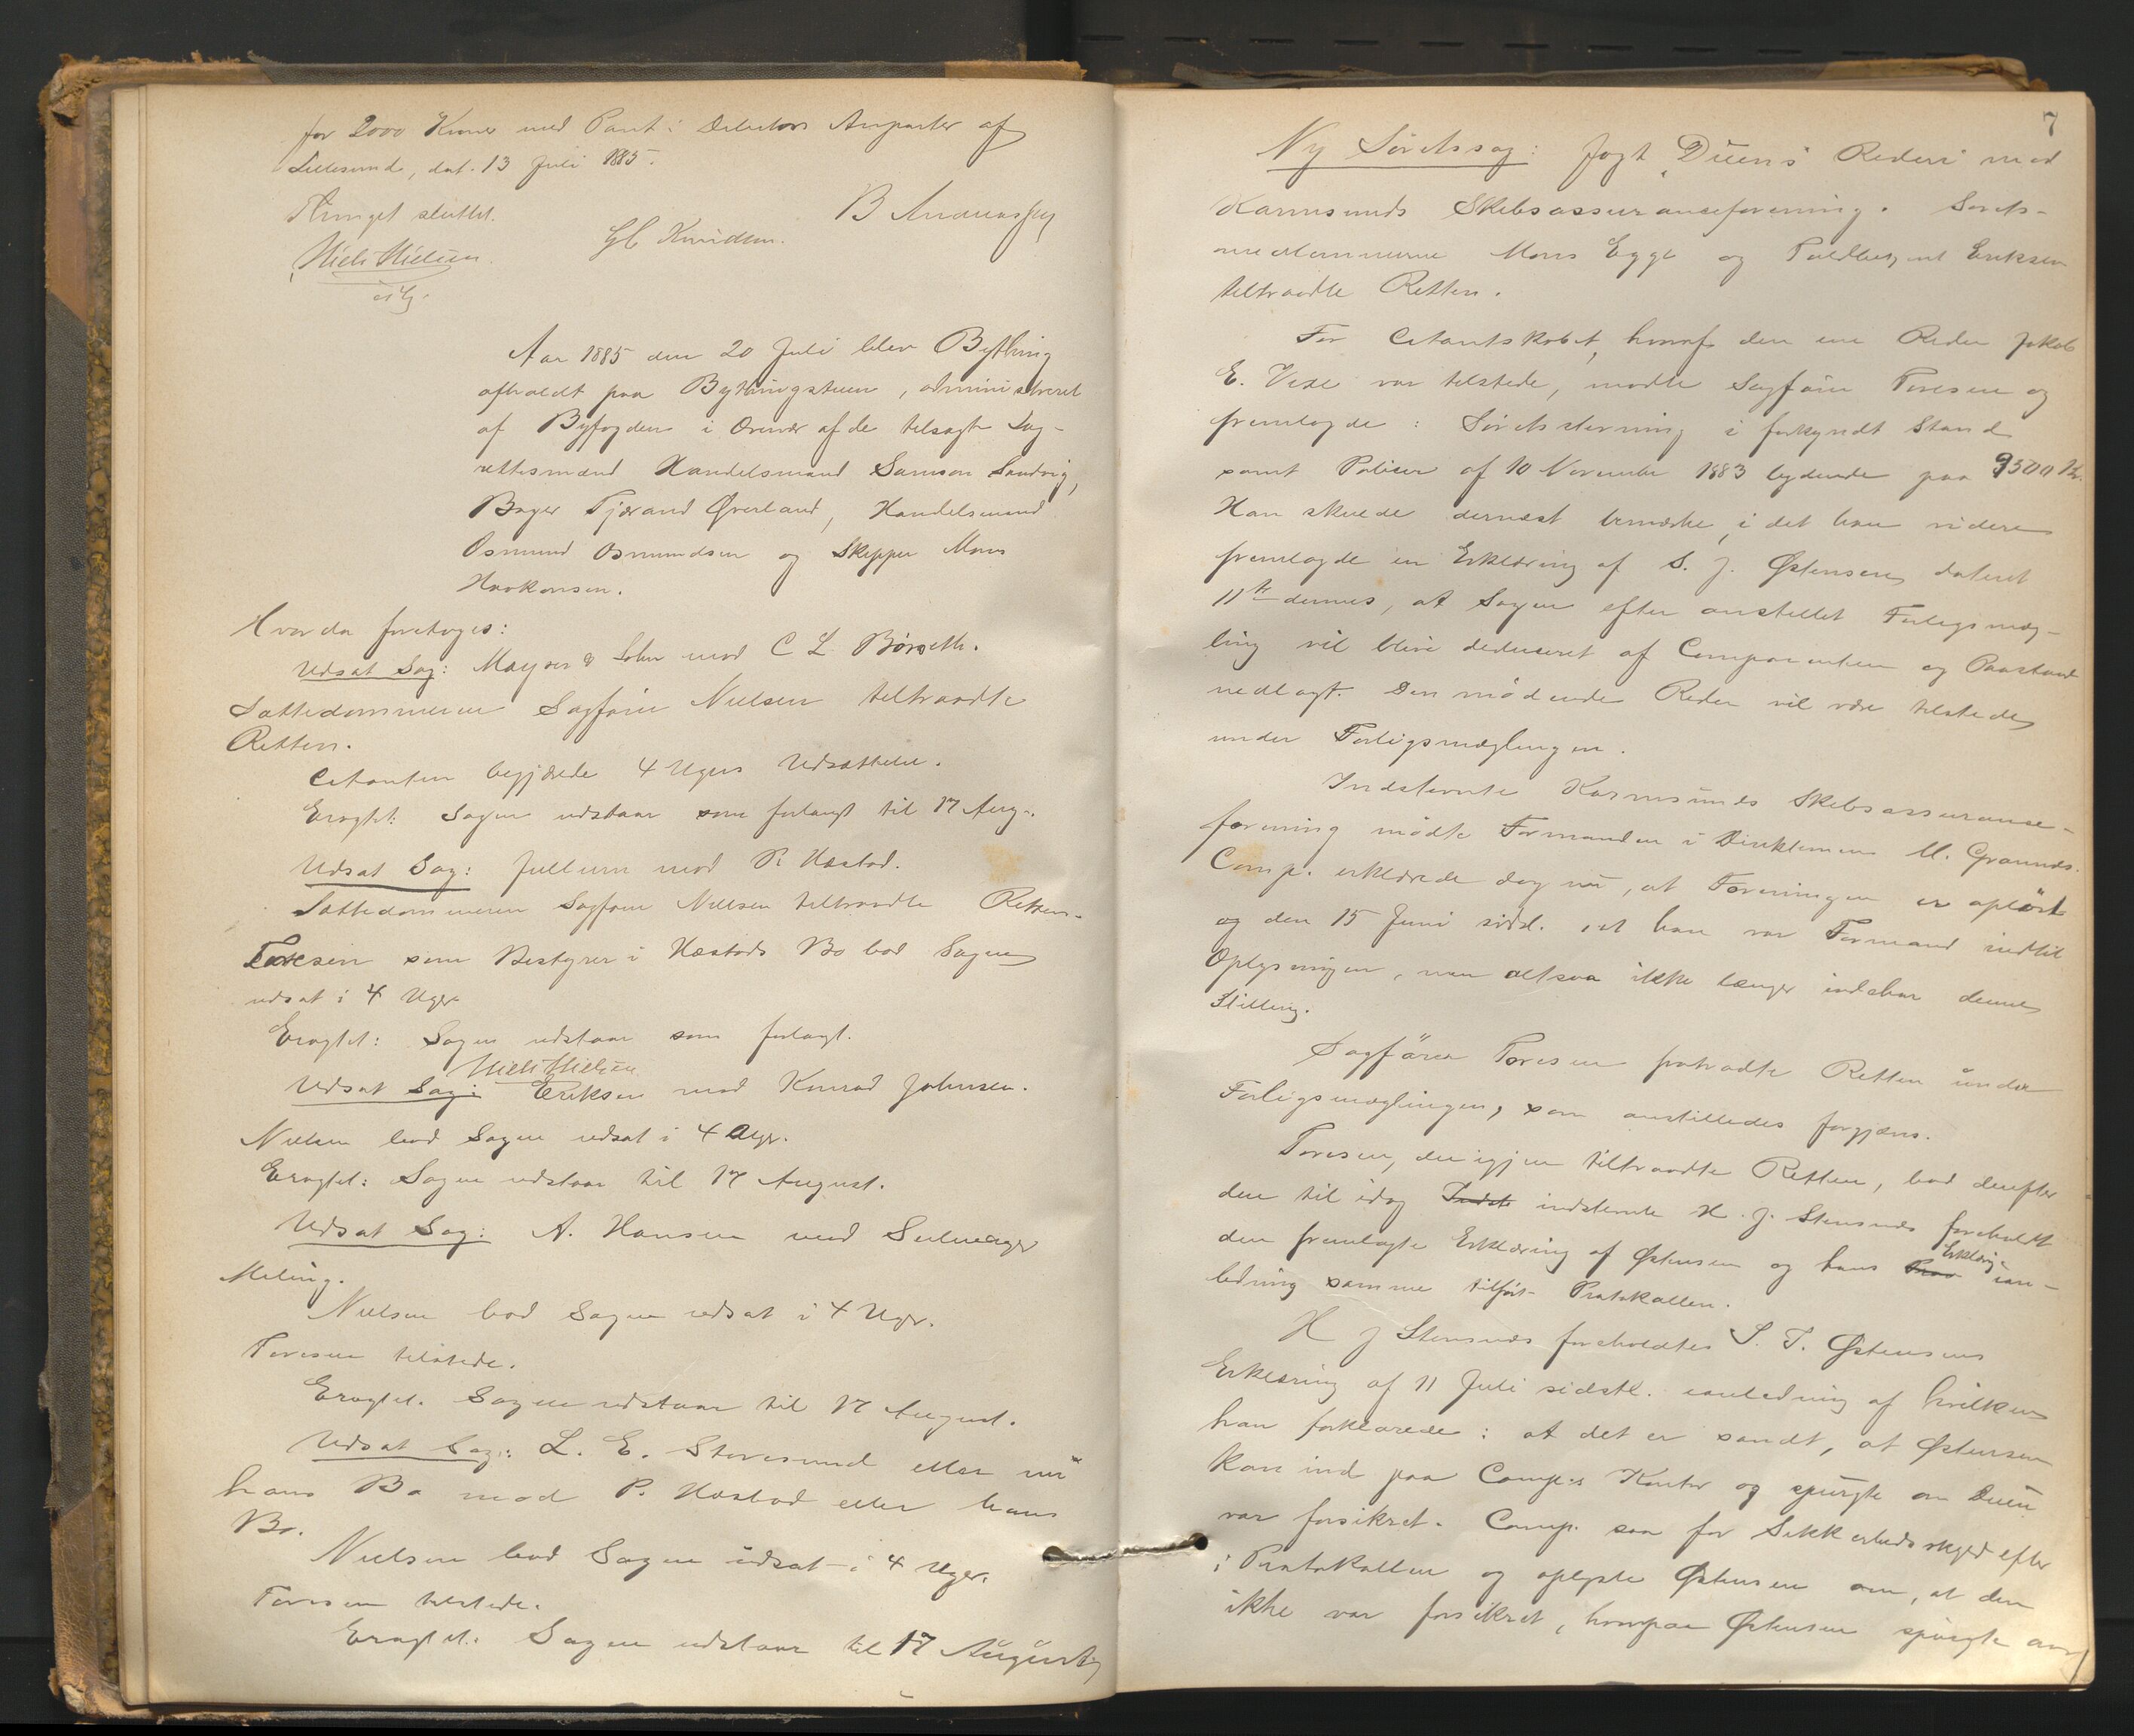 for 2000 Kroner med Pant i Debitors Anparter af
Lillesund, dat. 13 Juli 1885.
Thinget sluttet.
Niels Nielsen. Gb Knudsen. B Andreassen
Aar 1885 den 20 Juli blev Bything
afholdt paa Bythingstuen, administreret
af Byfogden i Overvær af de tilsagte Lag-
rettesmænd Handelsmand Samson Sandvig,
Bager Tjerand Øverland, Handelsmand
Osmund Osmundsen og Skipper Mons
Haakonsen.
Hvor da foretoges:
Udsat Sag: Meyer & Sohn mod C L Børseth.
Sættedommeren Sagfører Nielsen tiltraadte
Retten.
Citanten begjærede 4 Ugers Udsættelse.
Eragtet: Sagen udstaar som forlangt til 17 Aug.
Udsat Sag: Jullum mod P. Næstad.
Sættedommeren Sagfører Nielsen tiltraadte Retten.
Toresen som Bestyrer i Næstads Bo bad Sagen
udsat i 4 Uger.
Eragtet: Sagen udstaar som forlagt.
Niels Nielsen
Udsat Sag: Eriksen mod Konrad Johnsen.
Nielsen bad Sagen udsat i 4 Uger.
Eragtet: Sagen udstaar til 17 August.
Udsat Sag: A. Hansen mod
Meling.
Nielsen bad Sagen udsat i 4 Uger.
Toresen tilstede.
Eragtet. Sagen udstaar til 17 August.
Udsat Sag: L. E. Storesund eller nu
hans Bo mod P. Næstad eller hans
Bo.
Nielsen bad Sagen udsat i 4 Uger.
Toresen tilstede.
Eragtet. Sagen udstaar til 17 August
7
Ny Søretssag: Jagt "Duens" Rederi mod
Karmsunds Skibsassuranceforening. Sørets-
meddommerne Mons Egge og Toldbetjent Eriksen
tiltraadte Retten.
For Citantskabet, hvoraf den ene Reder Jakob
E. Vise var tilstede, mødte Sagfører Toresen og
fremlagde: Søretsstevning i forkyndt Stand
samt Policen af 10 November 1883 lydende paa 9500 Kr.
Han skulde dernæst bemærke, i det han videre
fremlagde en Erklæring af S. J. Østensen dateret
11te dennes, at Sagen efter anstillet Forligsmæg-
ling vil blive deduceret af Comparenten og Paastand
nedlagt. Den mødende Reder vil være tilstede
under Forligsmæglingen.
Indstevnte Karmsunds Skibsassurance-
forening mødte Formanden i Direktionen M.
Comp. erklærede dog nu, at Foreningen er opløst
og den 15 Juni sidstl. at han var Formand indtil
Opløsningen, men altsaa ikke længer indehar denne
Stilling.
Sagfører Toresen fratraadte Retten under
Forligsmæglingen, som anstilledes forgjæves.
Toresen, der igjen tiltraadte Retten, bad derefter
den til idag Indste indstevnte H. J. Stensnes foreholdt
den fremlagte Erklæring af Østensen og hans Erklæring i an-
ledning samme tilført Protokollen.
H J Stensnes foreholdtes S. J. Østensens
Erklæring af 11 Juli sidstl. i anledning af hvilken
han forklarede: at det er sandt, at Østensen
kom ind paa Comp.s Kontor og spurgte om Duen
var forsikret. Comp. saa for Sikkerheds skyld efter
i Protokollen og oplyste Østensen om, at den
ikke var forsikret, hvorpaa Østensen spurgte om